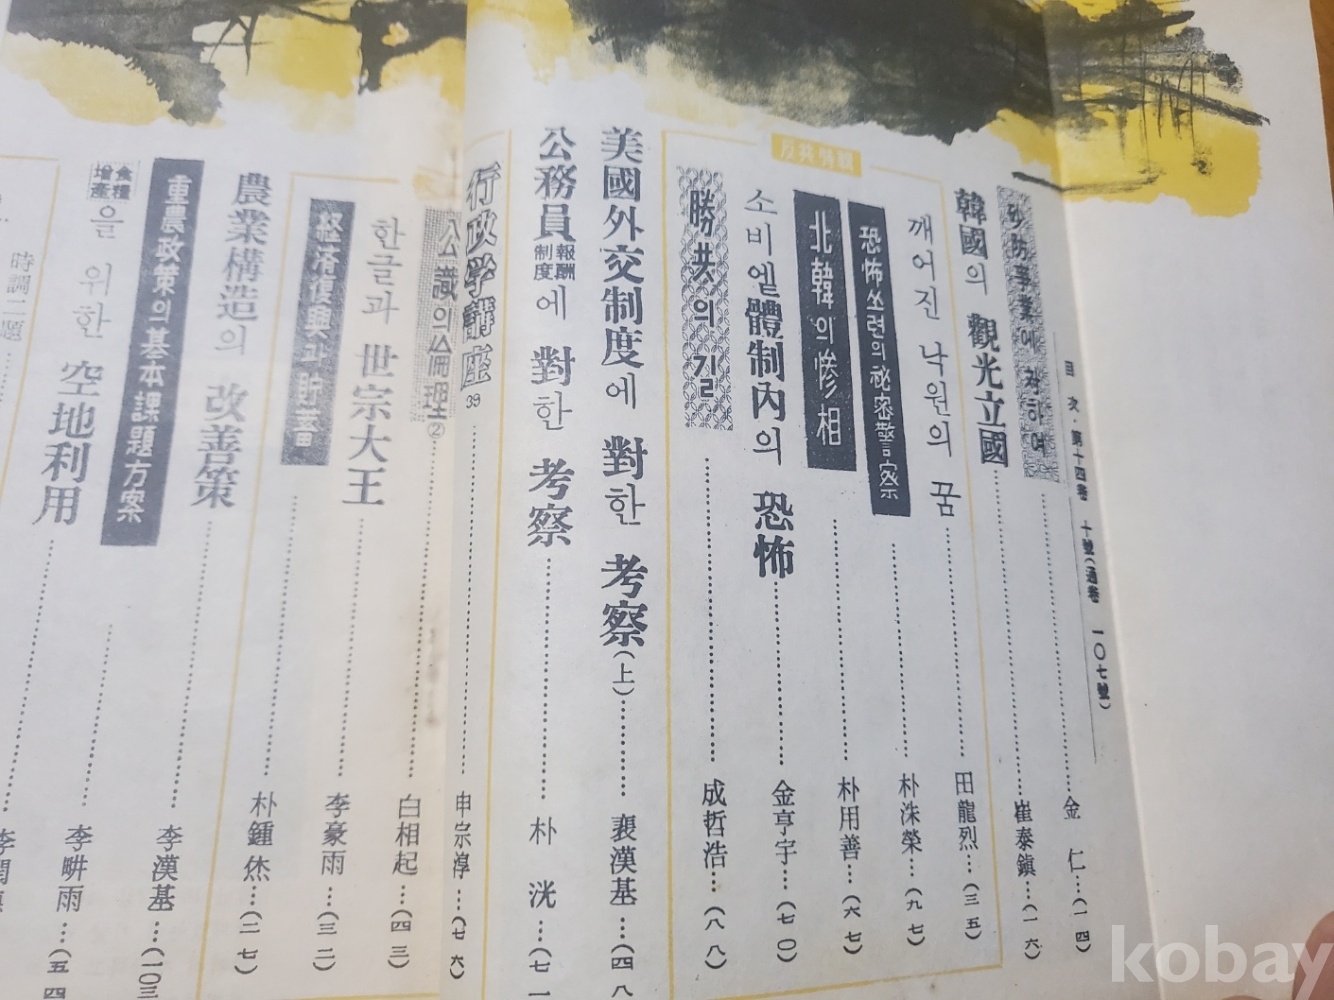 目次·第十四卷 十號(通卷 一〇七號)
砂防事業에 자하여 金仁…(一四)
韓國의 觀光立國 崔泰鎭…(一六)
反共外戰
깨어진 낙원의 꿈 田龍烈…(三五)
恐怖쏘련의 祕密警察 朴洙榮…(九七)
北韓의 慘相 朴用善…(六七)
소비엩體制內의 恐怖 金亨宇…(七〇)
勝共의 길 成哲浩…(八八)
美國外交制度에 對한 考察(上) 裵漢基…(四八
公務員報酬制度에 對한 考察 朴洸…(七一
行政学講座 39 申宗淳…(七六)
公識의 倫理②
한글과 世宗大王 白相起…(四三)
經济復興과 貯蓄 李豪雨…(三二)
農業構造의 改善策 朴鍾烋…(二七)
重農政策의 基本課題方案 李漢基…(一〇三
食糧增產을 위한 空地利用 李畊雨…(五四
時調二題